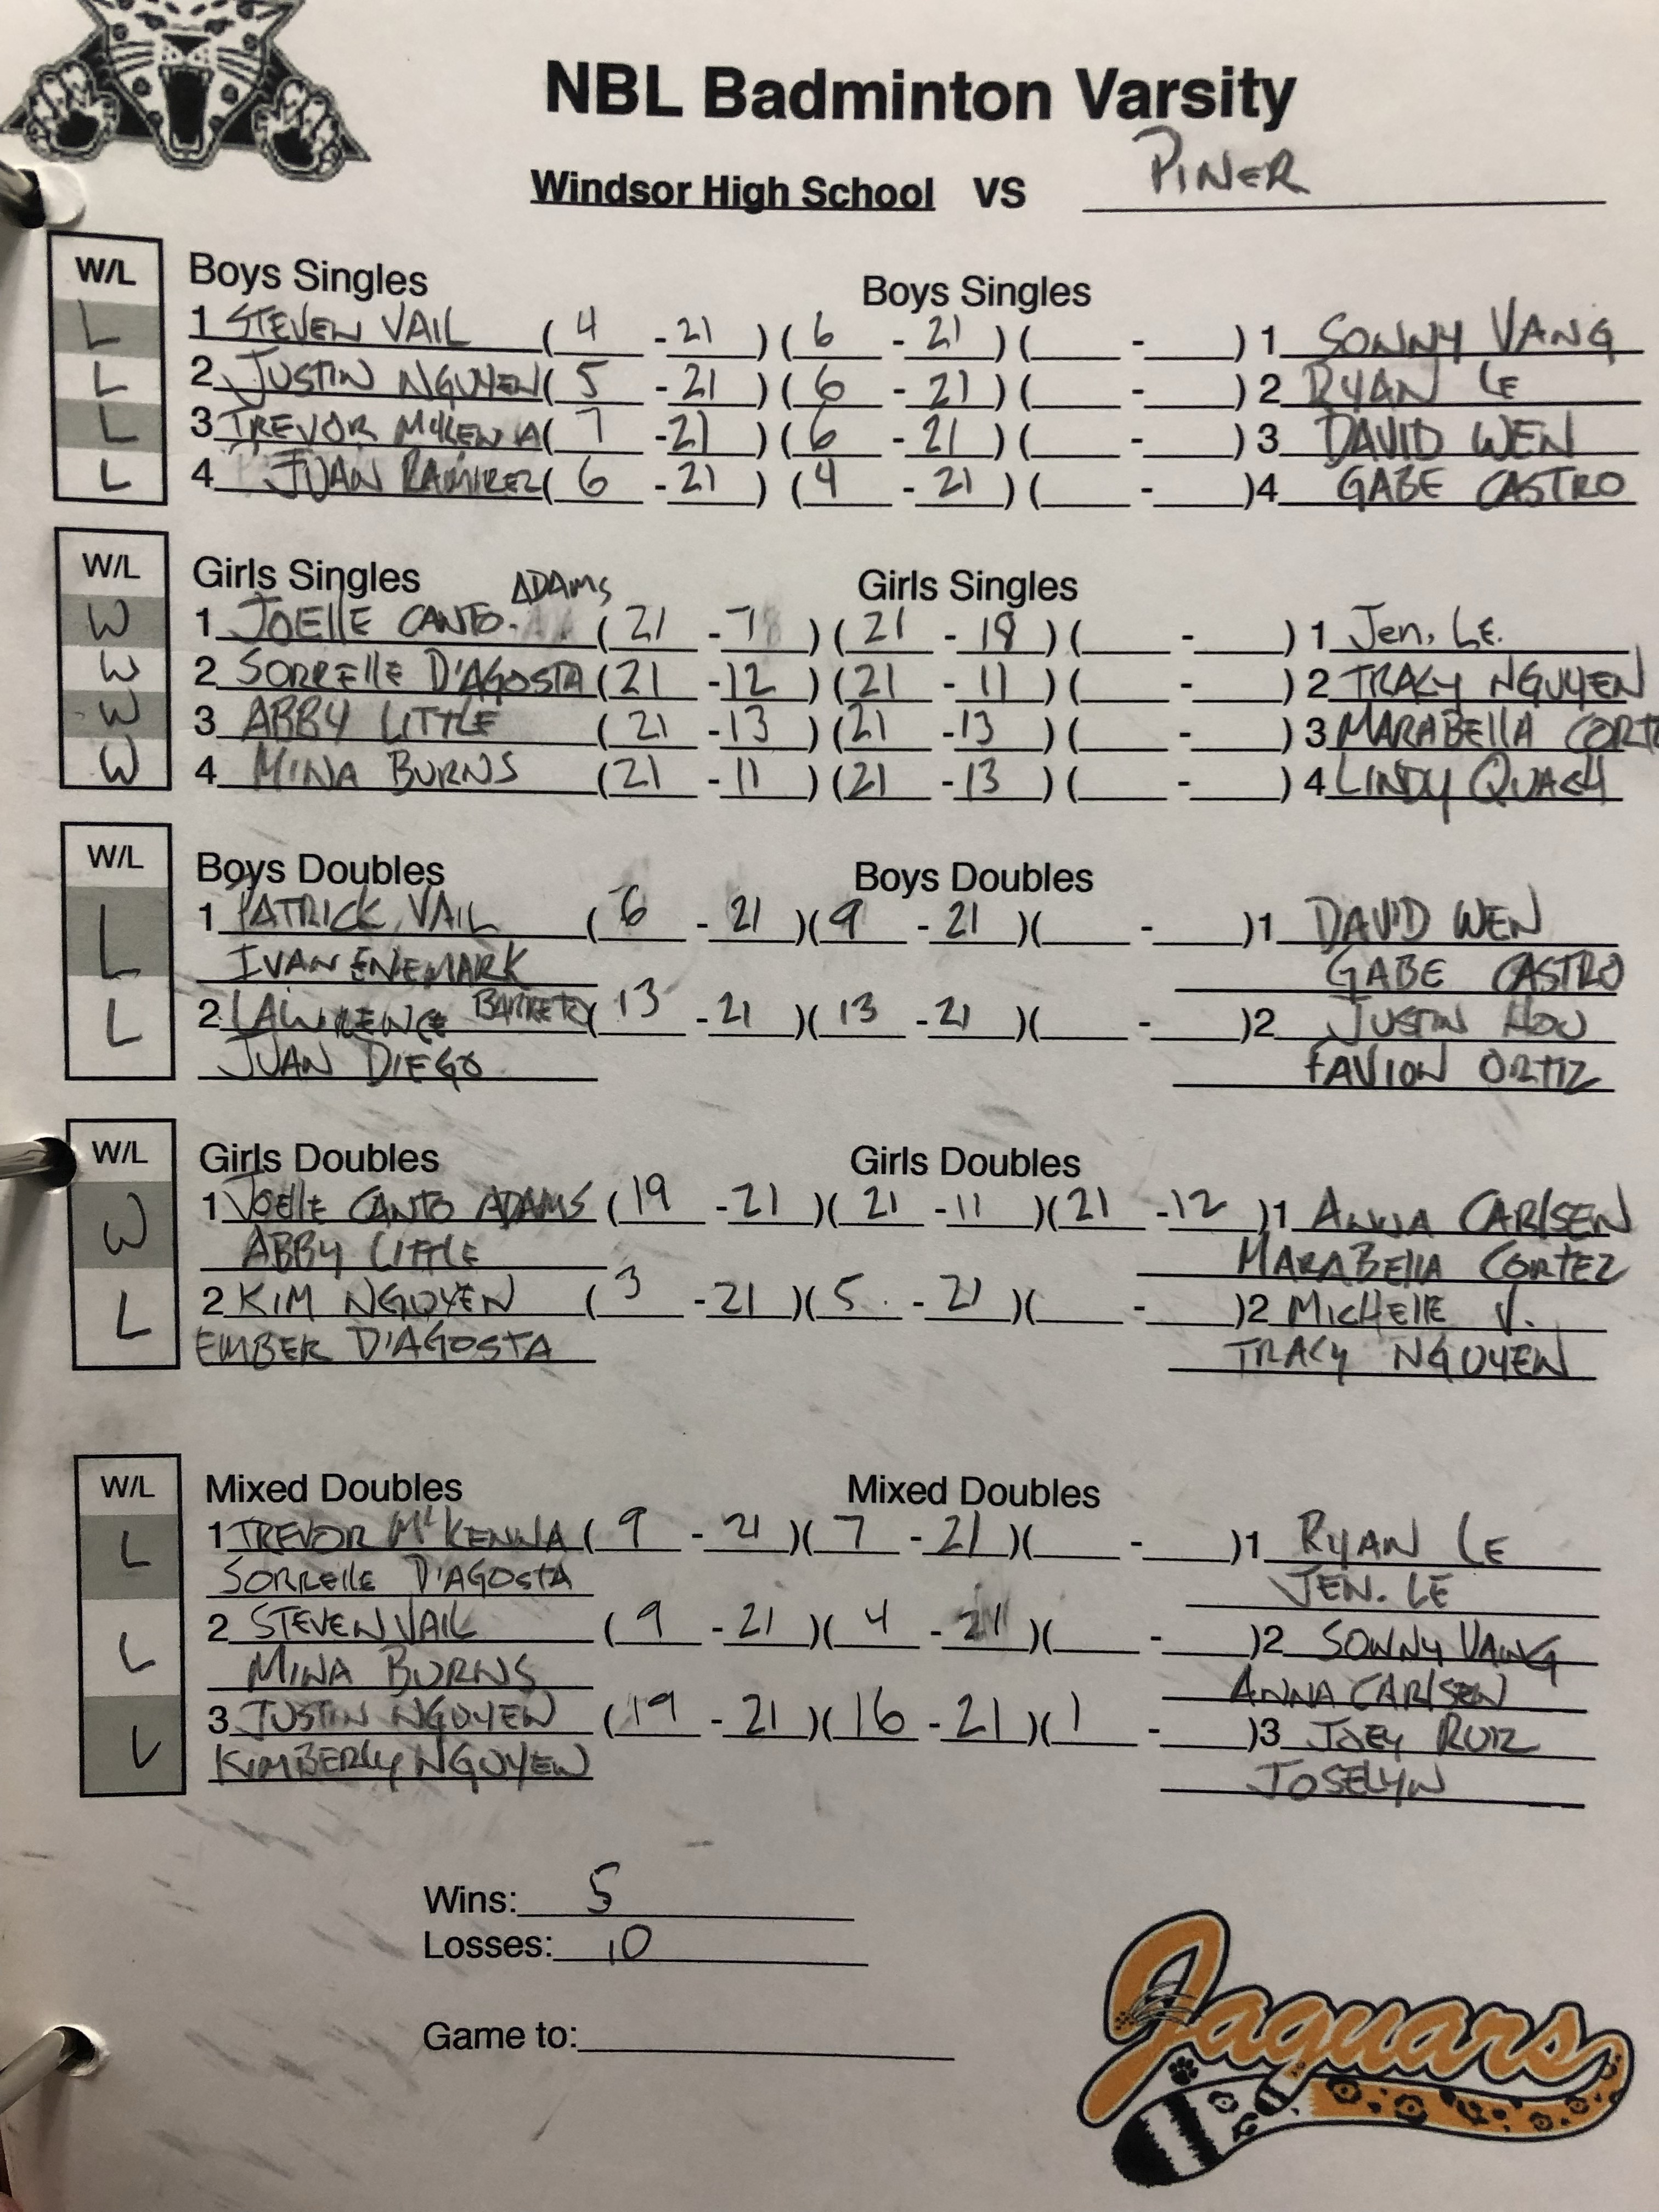 NBL Badminton Varsity
Windsor High School VS PINER
W/L Boys Singles Boys Singles
L 1 STEVEN VAIL ( 4 - 21 ) ( 6 - 21 ) ( - ) 1 SONNY VANG
L 2 JUSTIN NGUYEN ( 5 - 21 ) ( 6 - 21 ) ( - ) 2 RYAN LE
L 3 TREVOR McKENNA ( 7 - 21 ) ( 6 - 21 ) ( - ) 3 DAVID WEN
L 4 JUAN RAMIREZ ( 6 - 21 ) ( 4 - 21 ) ( - ) 4 GABE CASTRO
W/L Girls Singles Girls Singles
W 1 JOEllE CANTO. ADAMS ( 21 - 7 ) ( 21 - 18 ) ( - ) 1 Jen. LE.
W 2 SORREllE D'AGOSTA ( 21 - 12 ) ( 21 - 11 ) ( - ) 2 TRACY NGUYEN
W 3 ABBY LITTLE ( 21 - 13 ) ( 21 - 13 ) ( - ) 3 MARABEllA CORTE
W 4 MINA BURNS ( 21 - 11 ) ( 21 - 13 ) ( - ) 4 LINDY QUACH
W/L Boys Doubles Boys Doubles
L 1 PATRICK VAIL ( 6 - 21 ) ( 9 - 21 ) ( - ) 1 DAVID WEN
IVAN ENEMARK GABE CASTRO
L 2 LAWRENCE BARRETO ( 13 - 21 ) ( 13 - 21 ) ( - ) 2 JUSTIN HOU
JUAN DIEGO FAVION ORTIZ
W/L Girls Doubles Girls Doubles
W 1 JOEllE CANTO ADAMS ( 19 - 21 ) ( 21 - 11 ) ( 21 - 12 ) 1 ANNA CARlSEN
ABBY LITTLE MARABEllA CORTEZ
L 2 KIM NGUYEN ( 3 - 21 ) ( 5 - 21 ) ( - ) 2 MICHEllE V.
EMBER D'AGOSTA TRACY NGUYEN
W/L Mixed Doubles Mixed Doubles
L 1 TREVOR McKENNA ( 9 - 21 ) ( 7 - 21 ) ( - ) 1 RYAN LE
SORREllE D'AGOSTA JEN. LE
L 2 STEVEN VAIL ( 9 - 21 ) ( 4 - 21 ) ( - ) 2 SONNY VANG
MINA BURNS ANNA CARlSEN
L 3 JUSTIN NGUYEN ( 19 - 21 ) ( 16 - 21 ) ( 1 - ) 3 JOEY RUIZ
KIMBERLY NGUYEN JOSELYN
Wins: 5
Losses: 10
Game to:
Jaguars